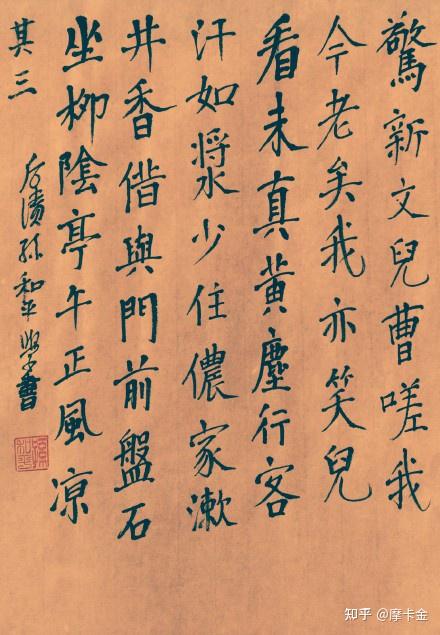 驚新文兒曹嗟我
今老矣我亦笑兒
看未真黄塵行客
汗如漿少住儂家漱
井香借與門前盤石
坐柳陰亭午正風凉
其三
孫和平學書
知乎 @摩卡金